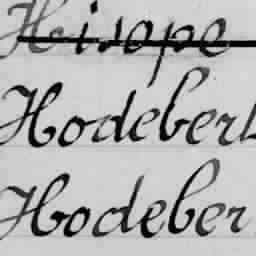 Hisope
Hodebert
Hodeber